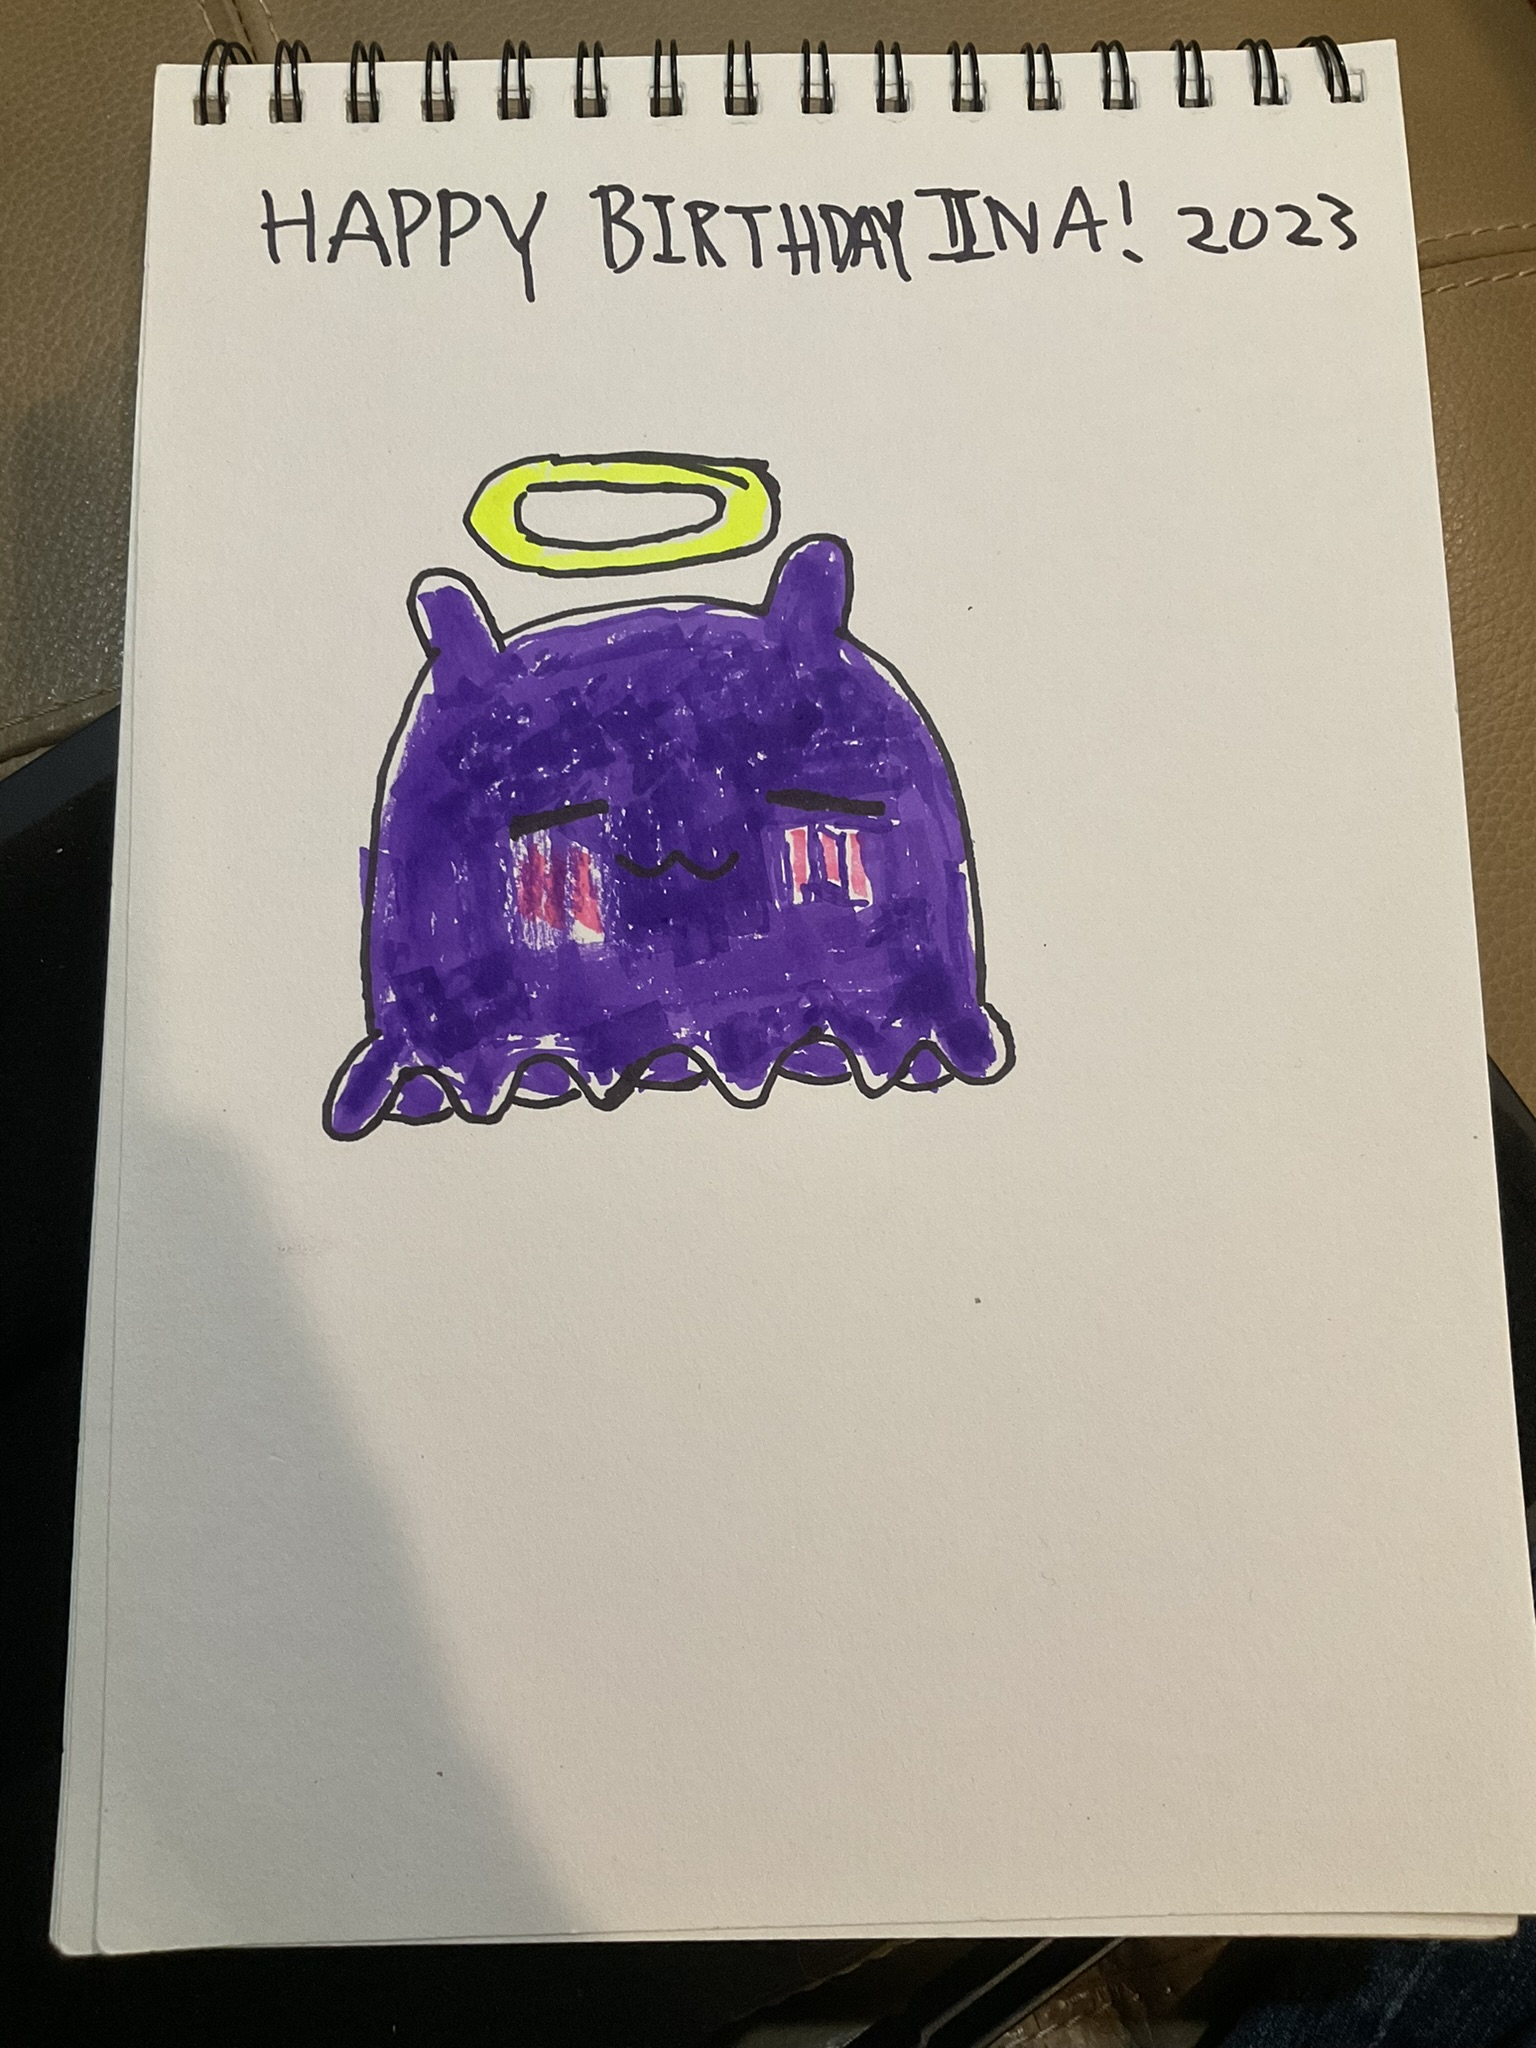 HAPPY BIRTHDAY INA! 2023